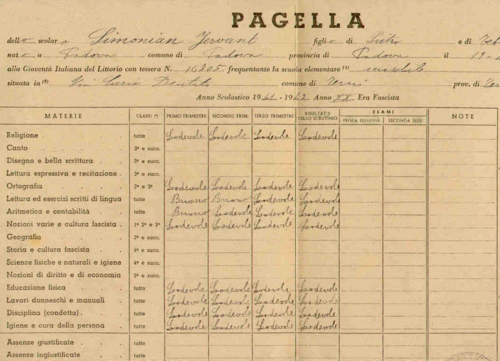 PAGELLA
dell scolar Simonian Jervant figli di Pietro e di
nat a Padova comune di Padova provincia di Padova il
alla Gioventù Italiana del Littorio con tessera N. frequentante la scuola elementare (1) maschile
situata in (2) comune di prov. di
Anno Scolastico 1941-1942 Anno XX Era Fascista
MATERIE CLASSI PRIMO TRIMESTRE SECONDO TRIM. TERZO TRIMESTRE RISULTATO DELLO SCRUTINIO ESAMI PRIMA SESSIONE SECONDA SESS. NOTE
Religione tutte Lodevole Lodevole Lodevole Lodevole
Canto 3ª e succ.
Disegno e bella scrittura 2ª e succ.
Lettura espressiva e recitazione 3ª e succ.
Ortografia 2ª e 3ª Lodevole Lodevole Lodevole Lodevole
Lettura ed esercizi scritti di lingua tutte Buono Buono Lodevole Lodevole
Aritmetica e contabilità tutte Buono Lodevole Lodevole Lodevole
Nozioni varie e cultura fascista 1ª 2ª e 3ª Lodevole Lodevole Lodevole Lodevole
Geografia 3ª e succ.
Storia e cultura fascista 4ª e succ.
Scienze fisiche e naturali e igiene 4ª e succ.
Nozioni di diritto e di economia 5ª e succ.
Educazione fisica tutte Lodevole Lodevole Lodevole Lodevole
Lavori donneschi e manuali tutte Lodevole Lodevole Lodevole Lodevole
Disciplina (condotta) tutte Lodevole Lodevole Lodevole Lodevole
Igiene e cura della persona tutte Lodevole Lodevole Lodevole Lodevole
Assenze giustificate tutte
Assenze ingiustificate tutte